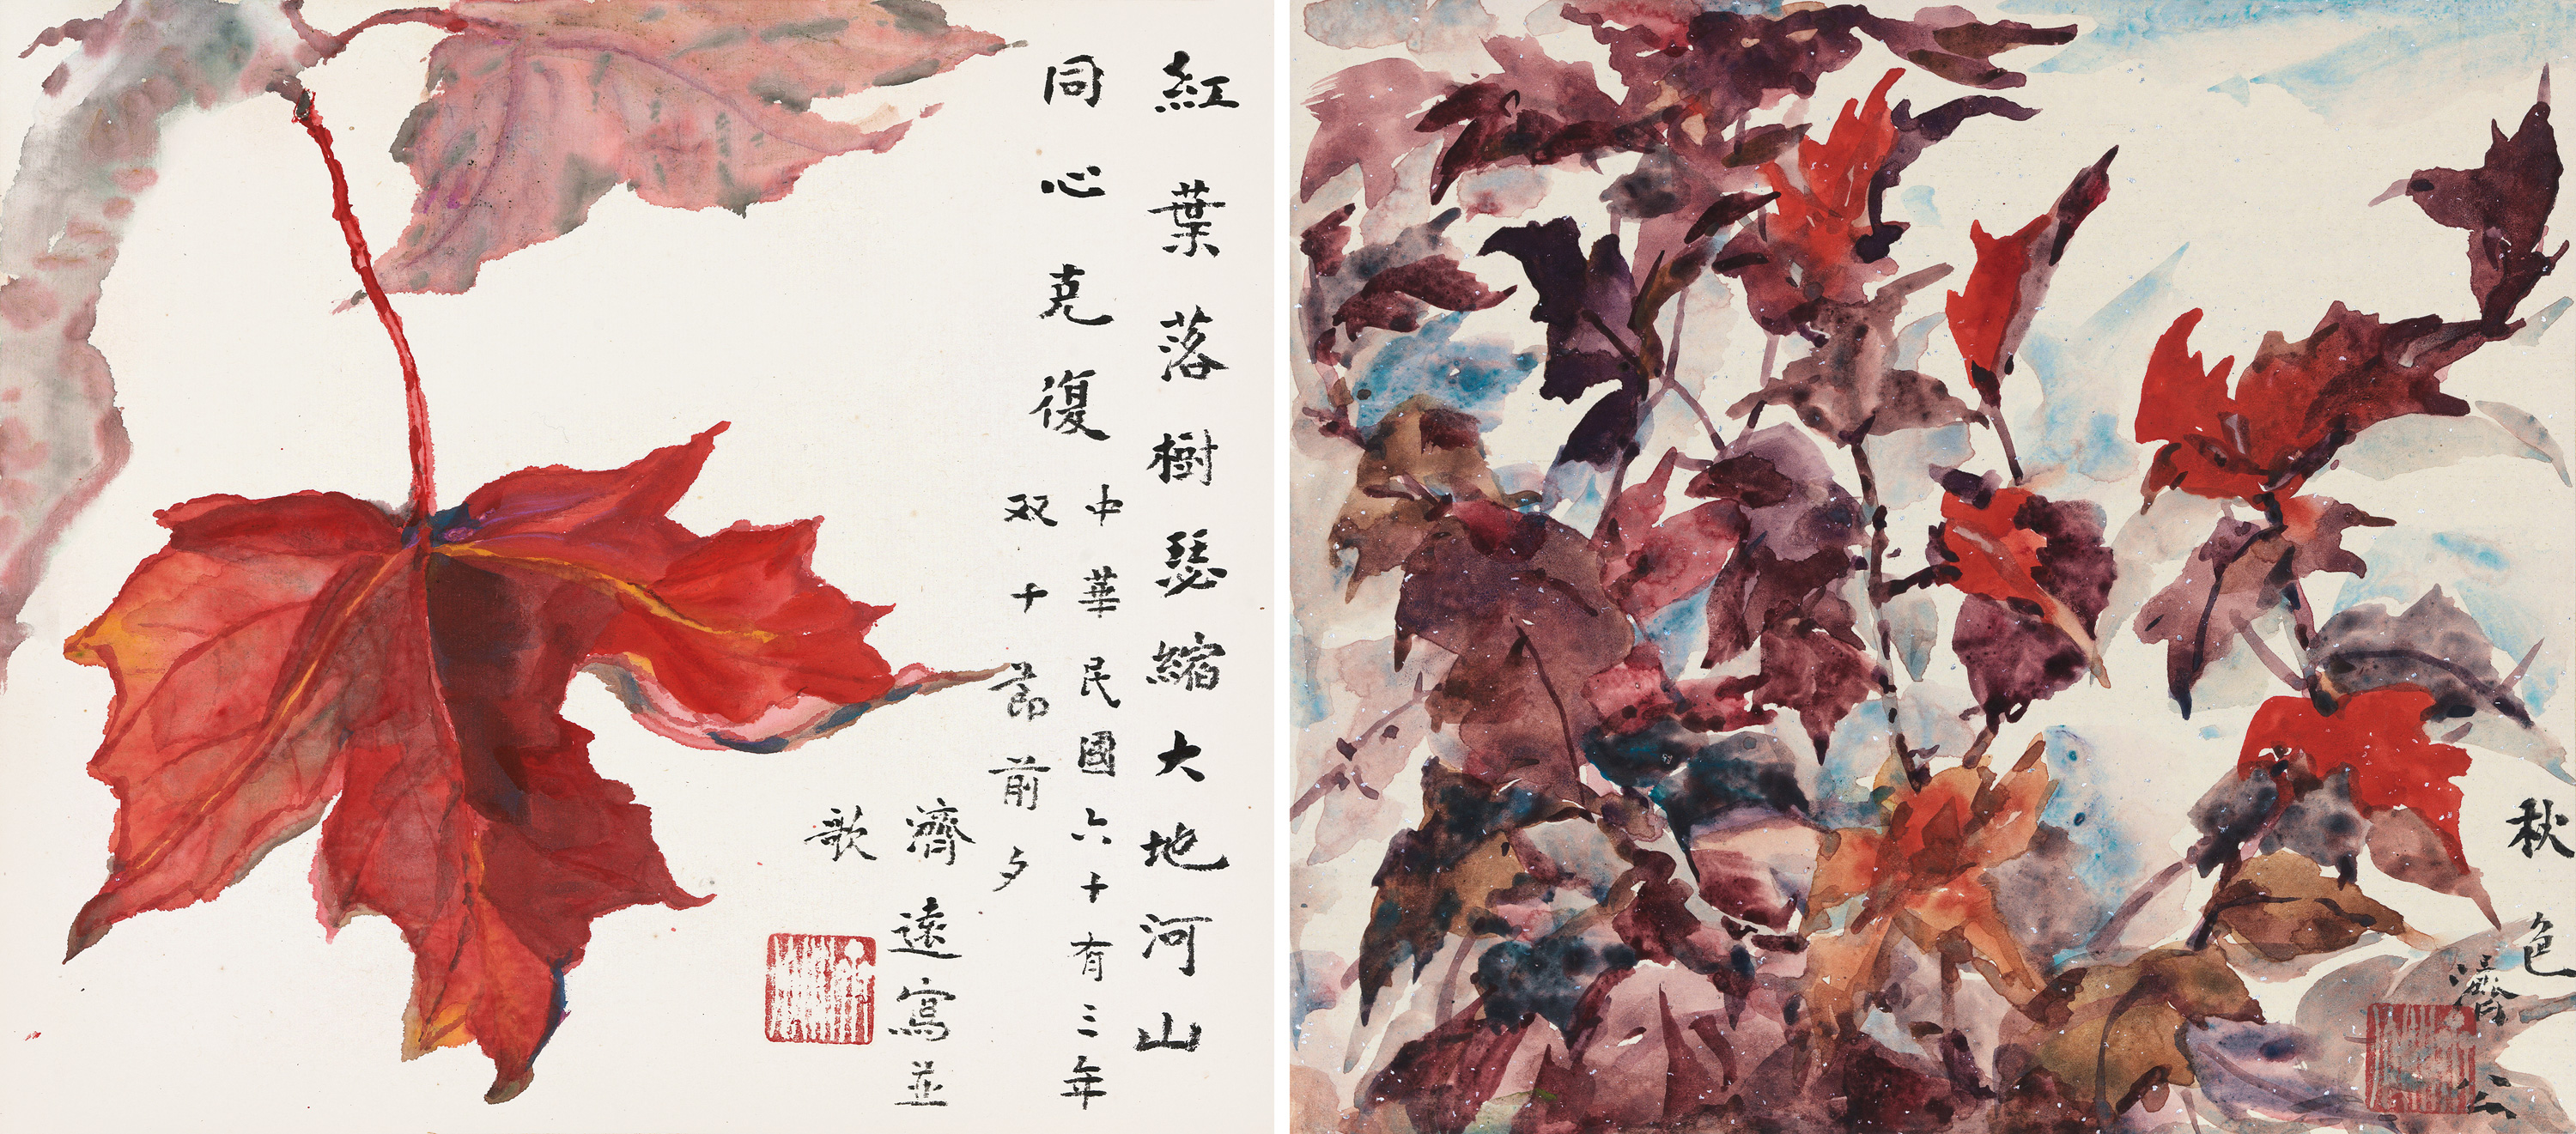 紅葉落樹瑟縮大地河山
同心克復
中華民國六十有三年
双十節前夕
濟遠寫並
歌
秋色
濟公